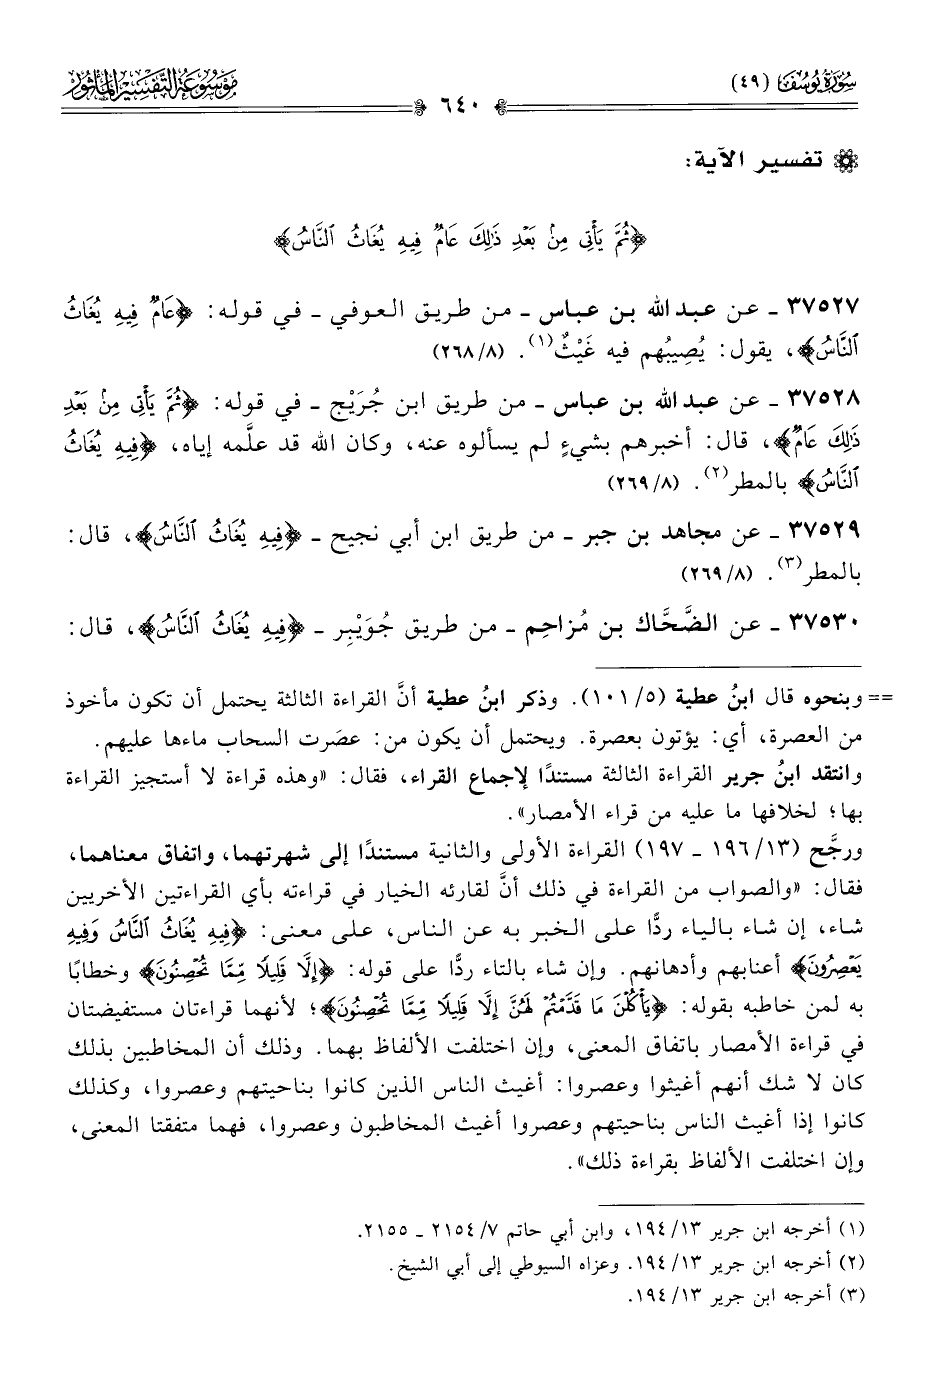 سُورَةُ يُوسُفَ (٤٩)
٦٤٠
مَوْسُوعَةُ التَّفْسِيرِ المَأْثُور
تفسير الآية:
﴿ثُمَّ يَأْتِي مِنۢ بَعْدِ ذَٰلِكَ عَامٌ فِيهِ يُغَاثُ ٱلنَّاسُ﴾
٣٧٥٢٧ ـ عن عبد الله بن عباس ـ من طريق العوفي ـ في قوله: ﴿عَامٌ فِيهِ يُغَاثُ
ٱلنَّاسُ﴾، يقول: يُصِيبُهم فيه غَيْثٌ(١). (٢٦٨/٨)
٣٧٥٢٨ ـ عن عبد الله بن عباس ـ من طريق ابن جُرَيْج ـ في قوله: ﴿ثُمَّ يَأْتِي مِنۢ بَعْدِ
ذَٰلِكَ عَامٌ﴾، قال: أخبرهم بشيءٍ لم يسألوه عنه، وكان الله قد علَّمه إياه، ﴿فِيهِ يُغَاثُ
ٱلنَّاسُ﴾ بالمطر(٢). (٢٦٩/٨)
٣٧٥٢٩ ـ عن مجاهد بن جبر ـ من طريق ابن أبي نجيح ـ ﴿فِيهِ يُغَاثُ ٱلنَّاسُ﴾، قال:
بالمطر(٣). (٢٦٩/٨)
٣٧٥٣٠ ـ عن الضَّحَّاك بن مُزاحِم ـ من طريق جُوَيْبِر ـ ﴿فِيهِ يُغَاثُ ٱلنَّاسُ﴾، قال:
== وبنحوه قال ابنُ عطية (١٠١/٥). وذكر ابنُ عطية أنَّ القراءة الثالثة يحتمل أن تكون مأخوذ
من العصرة، أي: يؤتون بعصرة. ويحتمل أن يكون من: عصَرت السحاب ماءها عليهم.
وانتقد ابنُ جرير القراءة الثالثة مستندًا لإجماع القراء، فقال: «وهذه قراءة لا أستجيز القراءة
بها؛ لخلافها ما عليه من قراء الأمصار».
ورجَّح (١٩٦/١٣ ـ ١٩٧) القراءة الأولى والثانية مستندًا إلى شهرتهما، واتفاق معناهما،
فقال: «والصواب من القراءة في ذلك أنَّ لقارئه الخيار في قراءته بأي القراءتين الأخريين
شاء، إن شاء بالياء ردًّا على الخبر به عن الناس، على معنى: ﴿فِيهِ يُغَاثُ ٱلنَّاسُ وَفِيهِ
يَعْصِرُونَ﴾ أعنابهم وأدهانهم. وإن شاء بالتاء ردًّا على قوله: ﴿إِلَّا قَلِيلًا مِّمَّا تُحْصِنُونَ﴾ وخطابًا
به لمن خاطبه بقوله: ﴿يَأْكُلْنَ مَا قَدَّمْتُمْ لَهُنَّ إِلَّا قَلِيلًا مِّمَّا تُحْصِنُونَ﴾؛ لأنهما قراءتان مستفيضتان
في قراءة الأمصار باتفاق المعنى، وإن اختلفت الألفاظ بهما. وذلك أن المخاطبين بذلك
كان لا شك أنهم أغيثوا وعصروا: أغيث الناس الذين كانوا بناحيتهم وعصروا، وكذلك
كانوا إذا أغيث الناس بناحيتهم وعصروا أغيث المخاطبون وعصروا، فهما متفقتا المعنى،
وإن اختلفت الألفاظ بقراءة ذلك».
(١) أخرجه ابن جرير ١٩٤/١٣، وابن أبي حاتم ٢١٥٤/٧ ـ ٢١٥٥.
(٢) أخرجه ابن جرير ١٩٤/١٣. وعزاه السيوطي إلى أبي الشيخ.
(٣) أخرجه ابن جرير ١٩٤/١٣.